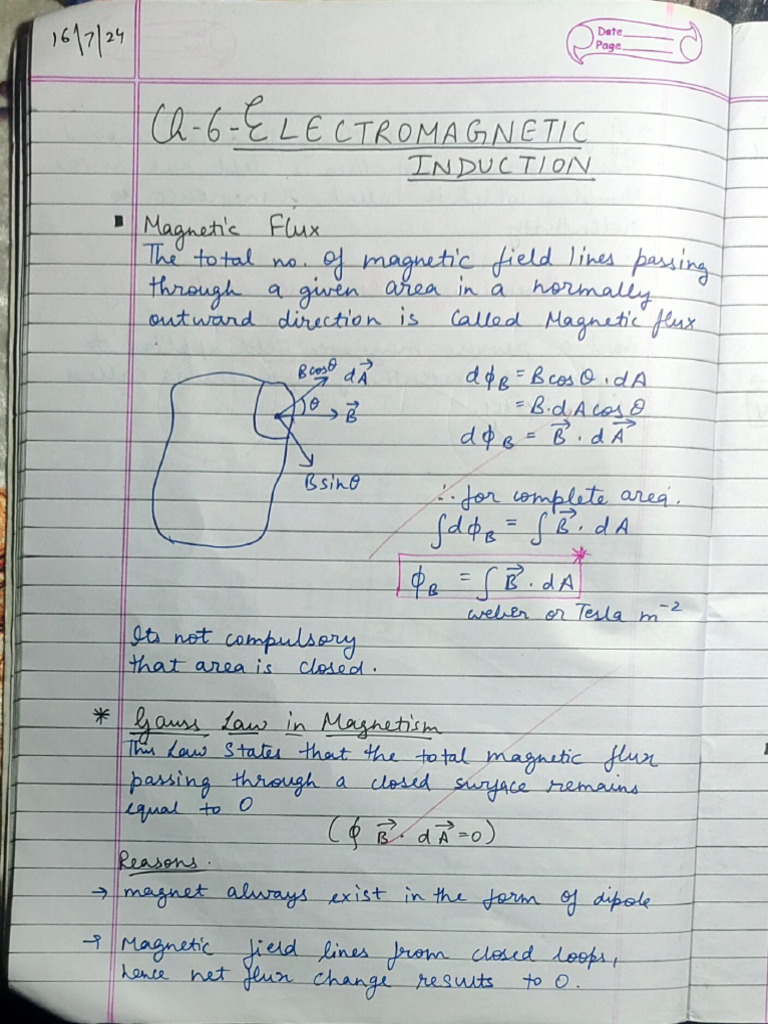 16/7/24
Date
Page
Ch-6-ELECTROMAGNETIC
INDUCTION
Magnetic Flux
The total no. of magnetic field lines passing
through a given area in a normally
outward direction is called Magnetic flux
Bcosθ dA⃗
θ
B⃗
Bsinθ
dϕ_B = Bcosθ · dA
= B·dAcosθ
dϕ_B = B⃗ · dA⃗
∴ for complete area.
∫dϕ_B = ∫B⃗ · dA
ϕ_B = ∫B⃗ · dA *
weber or Tesla m⁻²
Its not compulsory
that area is closed.
* Gauss Law in Magnetism
This Law states that the total magnetic flux
passing through a closed surface remains
equal to 0
(∮ B⃗ · dA⃗ = 0)
Reasons.
→ magnet always exist in the form of dipole
→ Magnetic field lines from closed loops,
hence net flux change results to 0.